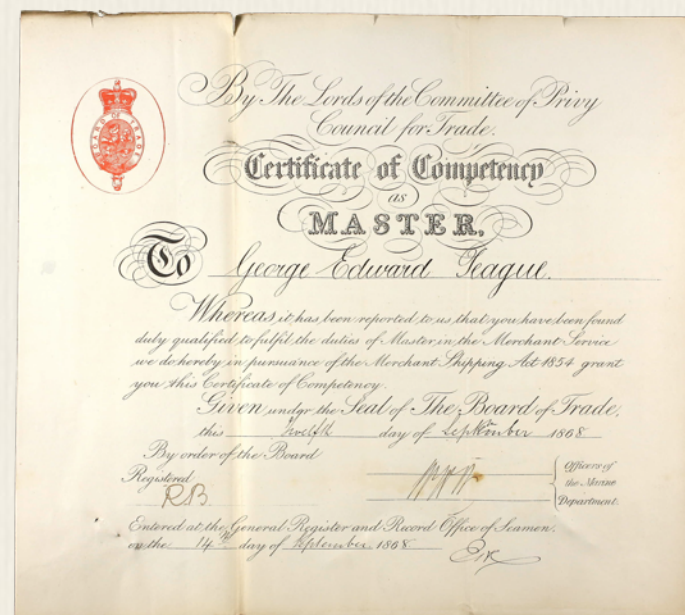 BOARD OF TRADE
By The Lords of the Committee of Privy
Council for Trade.
Certificate of Competency
as
MASTER,
To George Edward Teague.
Whereas it has been reported to us that you have been found
duly qualified to fulfil the duties of Master in the Merchant Service
we do hereby in pursuance of the Merchant Shipping Act 1854 grant
you this Certificate of Competency.
Given under the Seal of The Board of Trade,
this twelfth day of September 1868
By order of the Board
Registered
RB.
Officers of
the Marine
Department.
Entered at the General Register and Record Office of Seamen.
on the 14th day of September 1868